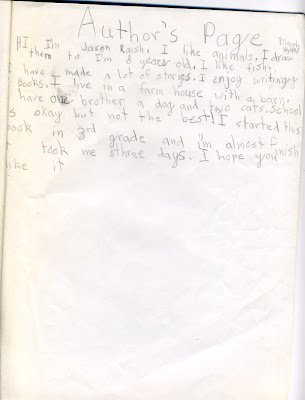 Author's Page
HI I'm Jason Raish. I like animals, I draw
them to I'm 8 years old, I like fish.
I have made a lot of stories. I enjoy writing
Books. I live in a farm house with a barn.
have one brother a dog and two cats. School
s okay but not the best! I started this
book in 3rd grade and i'm almost finish
took me three days. I hope you
like it